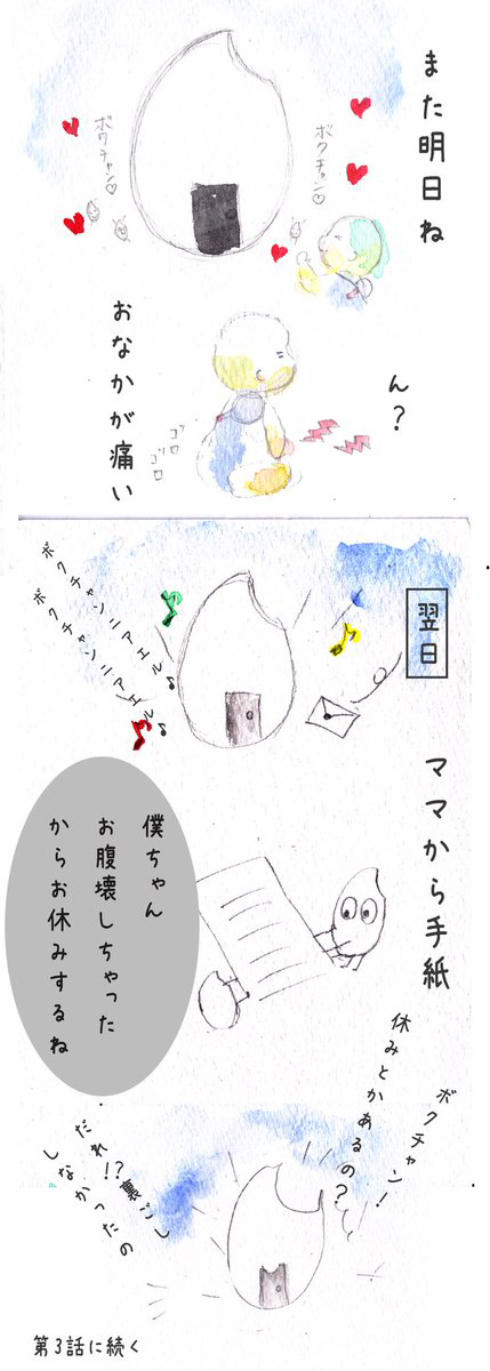 また明日ね
ボクチャン♡
ボクチャン♡
ん?
おなかが痛い
ゴロ
ゴロ
翌日
ボクチャンニアエル♪
ボクチャンニアエル♪
ママから手紙
僕ちゃん
お腹壊しちゃった
からお休みするね
ボクチャン!
休みとかあるの?
だれ!?裏ごし
しなかったの
第3話に続く